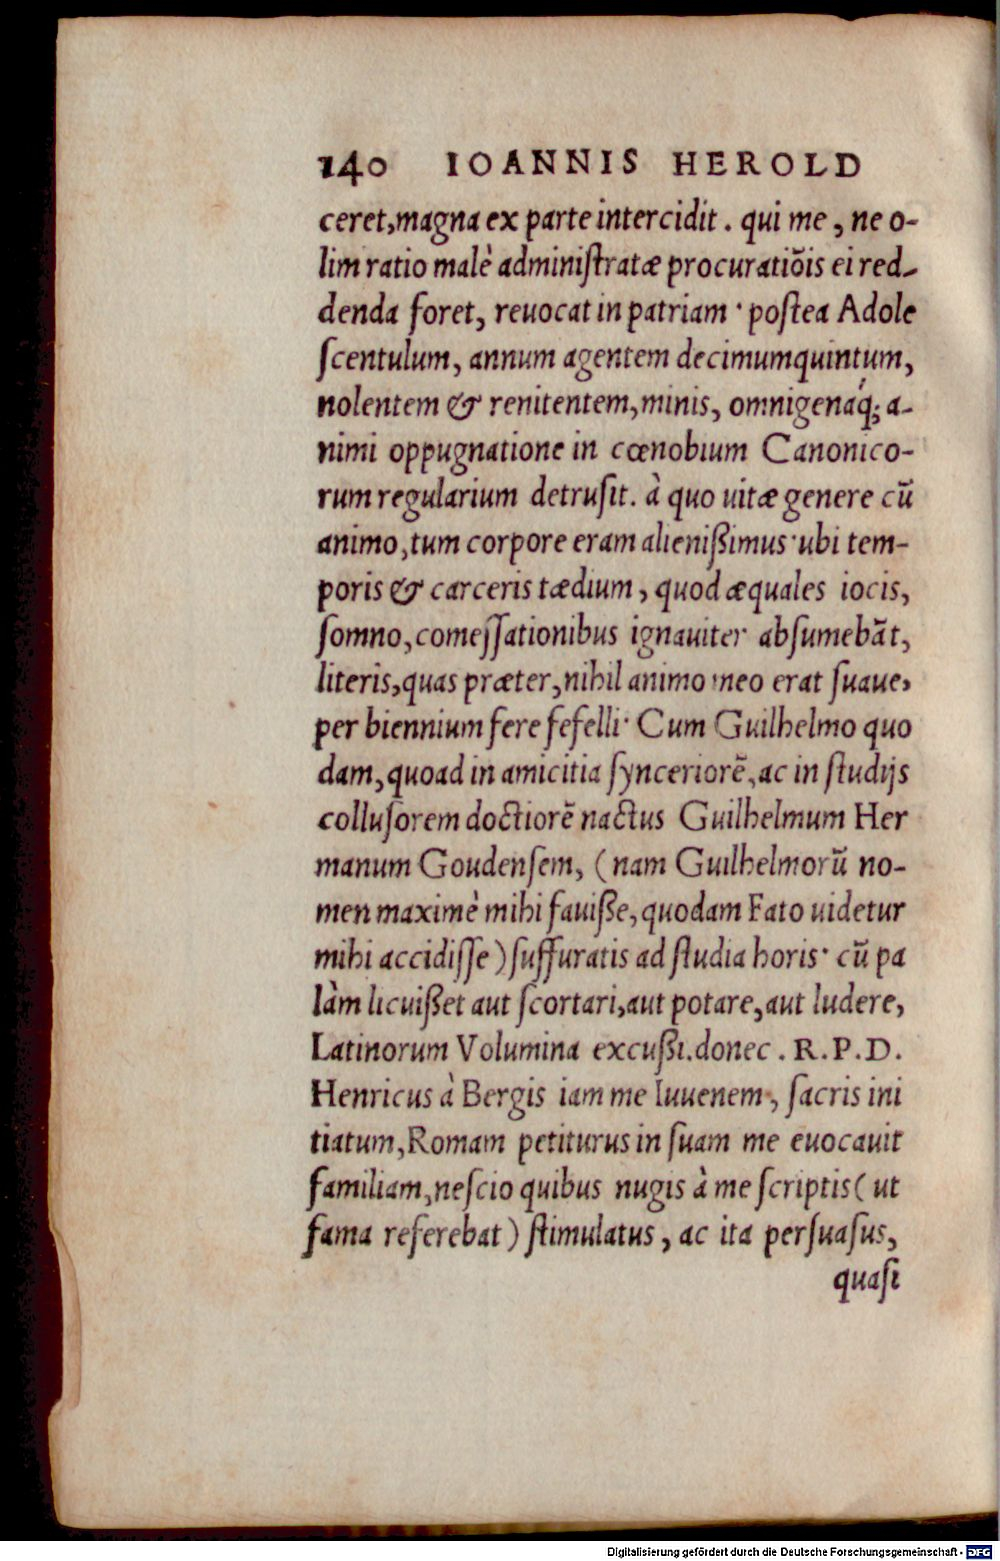 140 IOANNIS HEROLD
ceret, magna ex parte intercidit. qui me, ne o-
lim ratio malè administratæ procuratiõis ei red-
denda foret, reuocat in patriam· postea Adole
scentulum, annum agentem decimumquintum,
nolentem & renitentem, minis, omnigenaq́; a-
nimi oppugnatione in cœnobium Canonico-
rum regularium detrusit. à quo uitæ genere cũ
animo, tum corpore eram alienißimus· ubi tem-
poris & carceris tædium, quod æquales iocis,
somno, comessationibus ignauiter absumebãt,
literis, quas præter, nihil animo meo erat suaue,
per biennium fere fefelli· Cum Guilhelmo quo
dam, quoad in amicitia synceriorẽ, ac in studijs
collusorem doctiorẽ nactus Guilhelmum Her
manum Goudensem, (nam Guilhelmorũ no-
men maximè mihi fauiße, quodam Fato uidetur
mihi accidisse) suffuratis ad studia horis· cũ pa
làm licuißet aut scortari, aut potare, aut ludere,
Latinorum Volumina excußi. donec. R. P. D.
Henricus à Bergis iam me Iuuenem, sacris ini
tiatum, Romam petiturus in suam me euocauit
familiam, nescio quibus nugis à me scriptis (ut
fama referebat) stimulatus, ac ita persuasus,
quasi
Digitalisierung gefördert durch die Deutsche Forschungsgemeinschaft - DFG